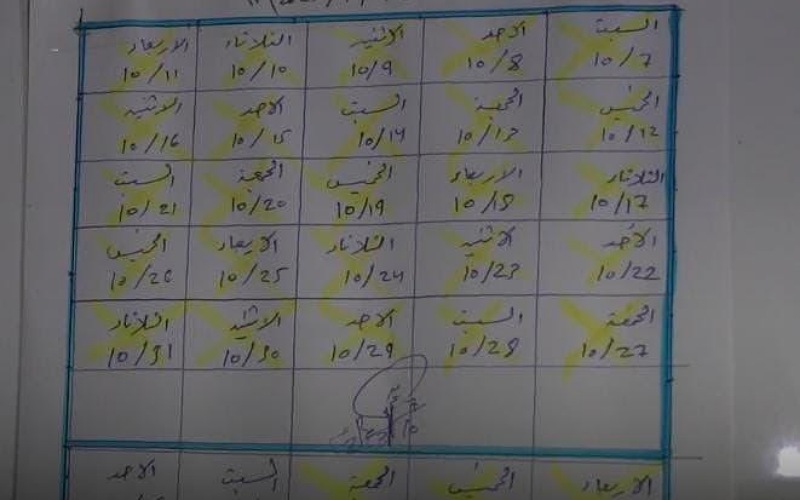 السبت الاحد الاثنين الثلاثاء الاربعاء
10/7 10/8 10/9 10/10 10/11
الخميس الجمعة السبت الاحد الاثنين
10/12 10/13 10/14 10/15 10/16
الثلاثاء الاربعاء الخميس الجمعة السبت
10/17 10/18 10/19 10/20 10/21
الأحد الاثنين الثلاثاء الاربعاء الخميس
10/22 10/23 10/24 10/25 10/26
الجمعة السبت الاحد الاثنين الثلاثاء
10/27 10/28 10/29 10/30 10/31
الاربعاء الخميس الجمعة السبت الاحد